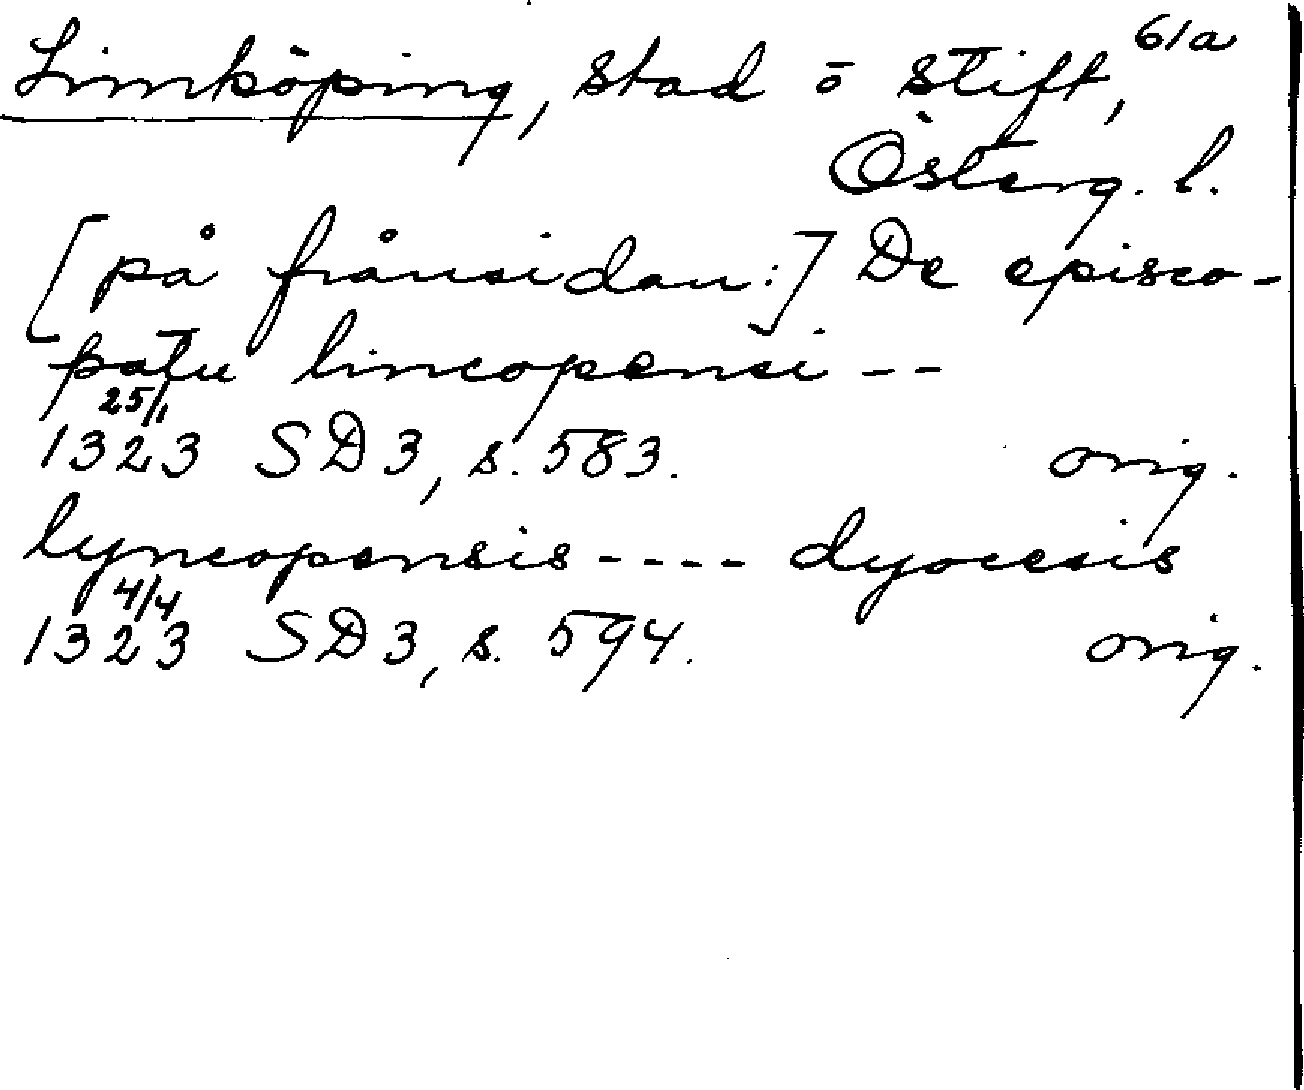 61a
Linköping, stad o stift,
Österg. l.
[på frånsidan:] De episco-
patu lincopensi --
25/1
1323 SD3, s. 583. orig.
lyncopensis ---- dyocesis
4/4
1323 SD3, s. 594. orig.